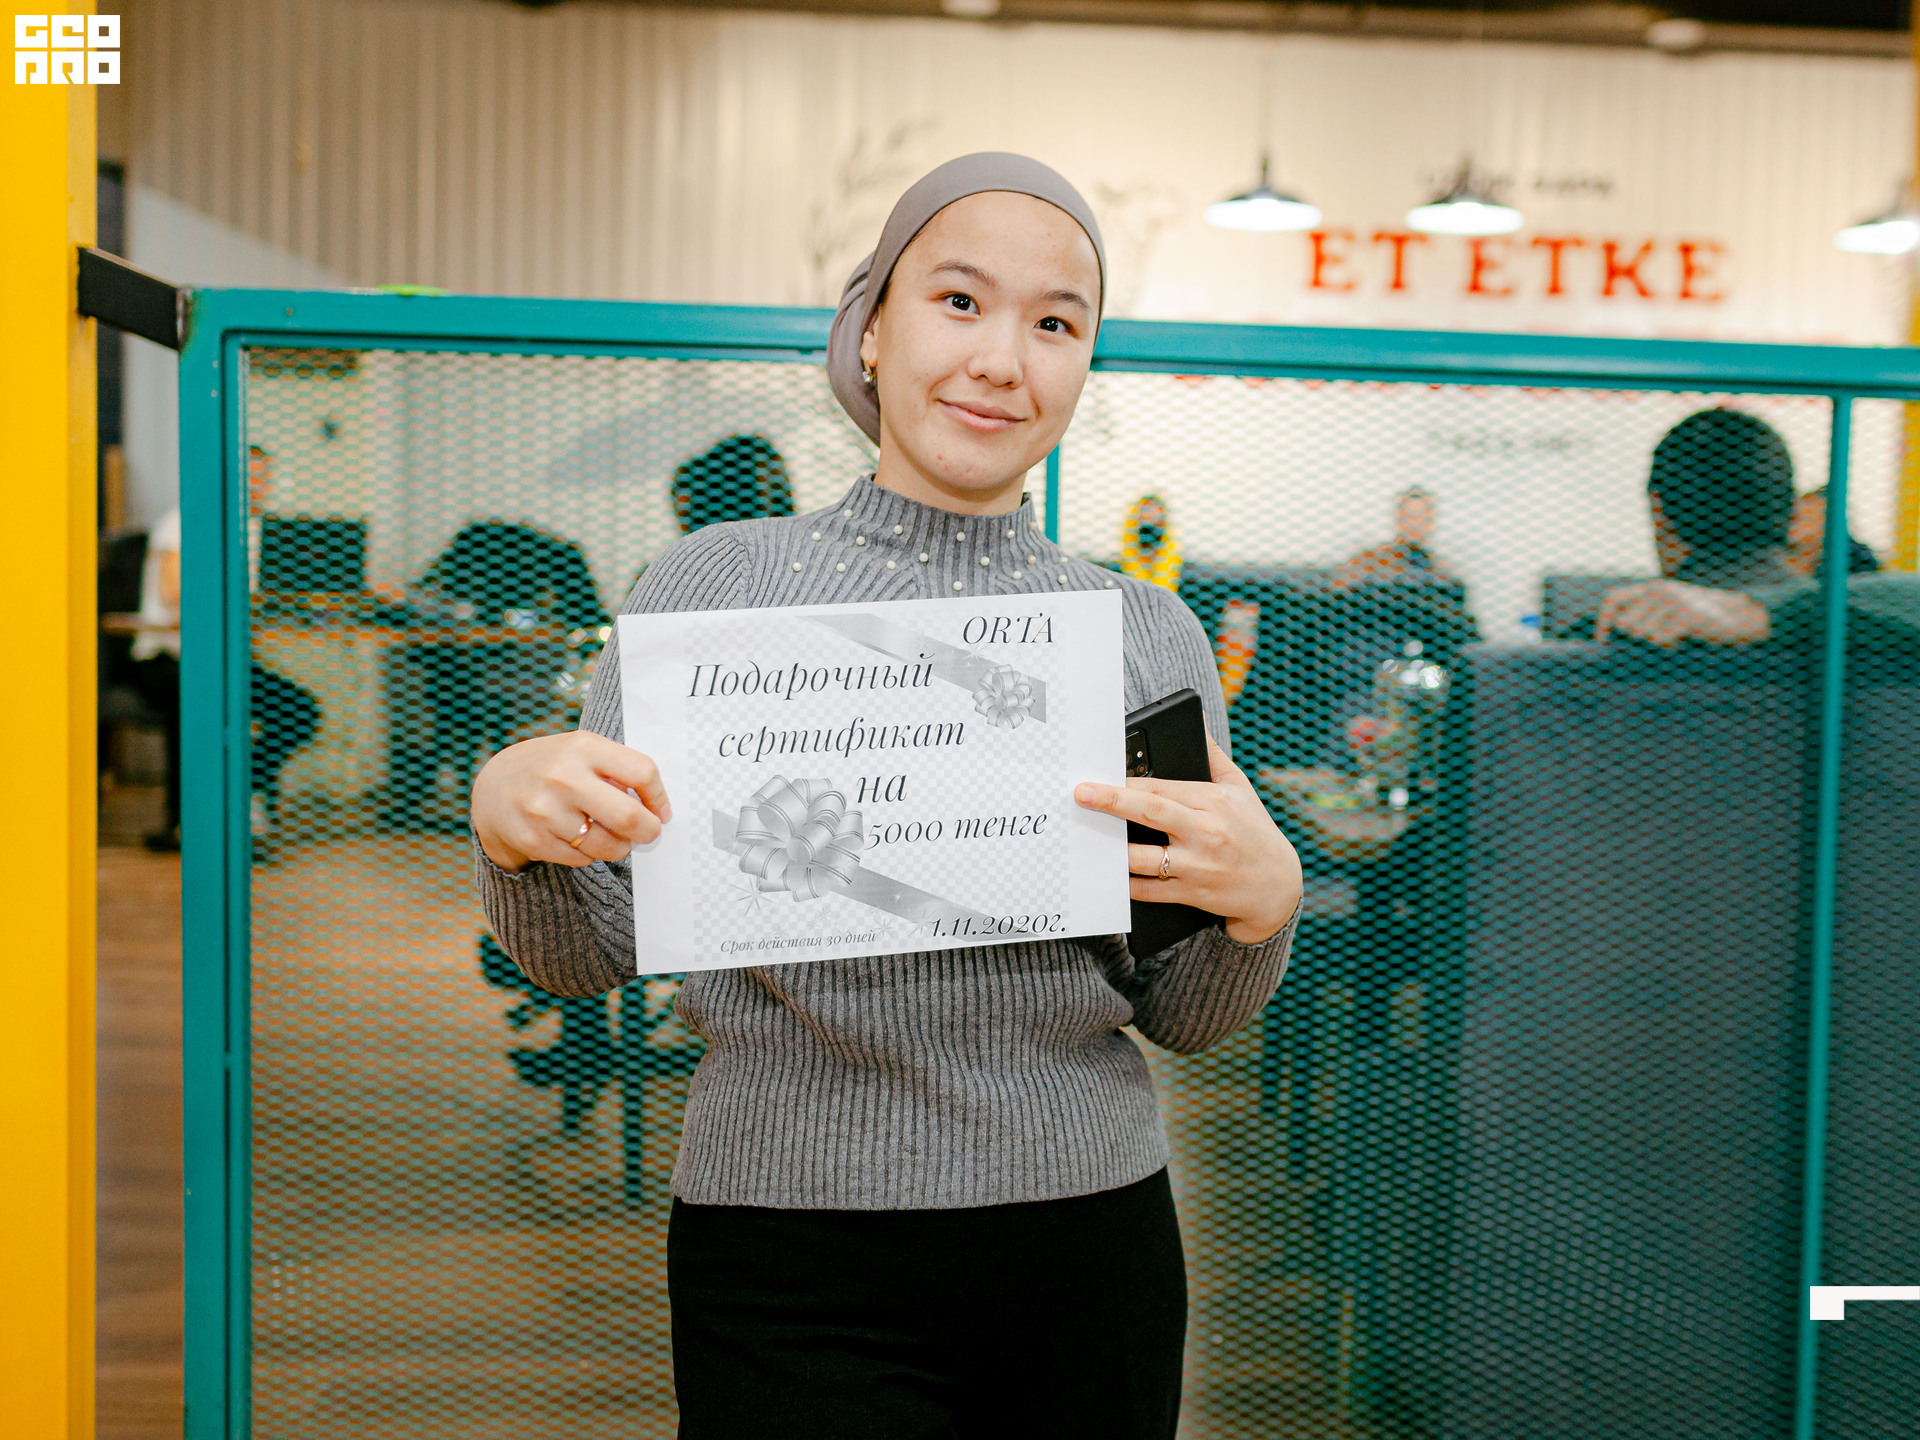 GEO
PRO
ET ETKE
ORTA
Подарочный
сертификат
на
5000 тенге
1.11.2020г.
Срок действия 30 дней